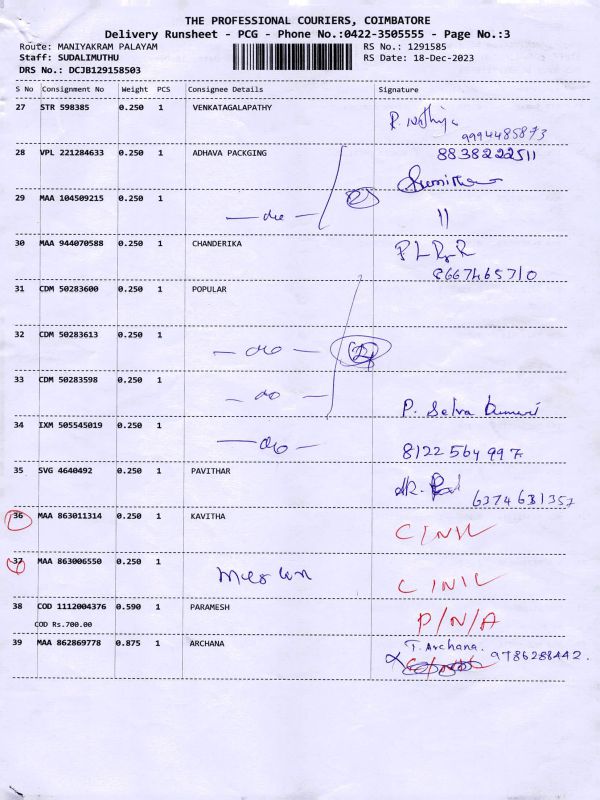 THE PROFESSIONAL COURIERS, COIMBATORE
Delivery Runsheet - PCG - Phone No.:0422-3505555 - Page No.:3
Route: MANIYAKRAM PALAYAM RS No.: 1291585
Staff: SUDALIMUTHU RS Date: 18-Dec-2023
DRS No.: DCJB129158503
S No Consignment No Weight PCS Consignee Details Signature
27 STR 598385 0.250 1 VENKATAGALAPATHY
9994485873
28 VPL 221284633 0.250 1 ADHAVA PACKGING 8838222511
29 MAA 104509215 0.250 1 — do — 11
30 MAA 944070588 0.250 1 CHANDERIKA
8667465710
31 CDM 50283600 0.250 1 POPULAR
32 CDM 50283613 0.250 1 — do —
33 CDM 50283598 0.250 1 — do — P. Selva Kumari
34 IXM 505545019 0.250 1 — do — 8122564997
35 SVG 4640492 0.250 1 PAVITHAR 6374631357
36 MAA 863011314 0.250 1 KAVITHA C/N/L
37 MAA 863006550 0.250 1 C/N/L
38 COD 1112004376 0.590 1 PARAMESH P/N/A
COD Rs.700.00
39 MAA 862869778 0.875 1 ARCHANA T. Archana. 9786288442.